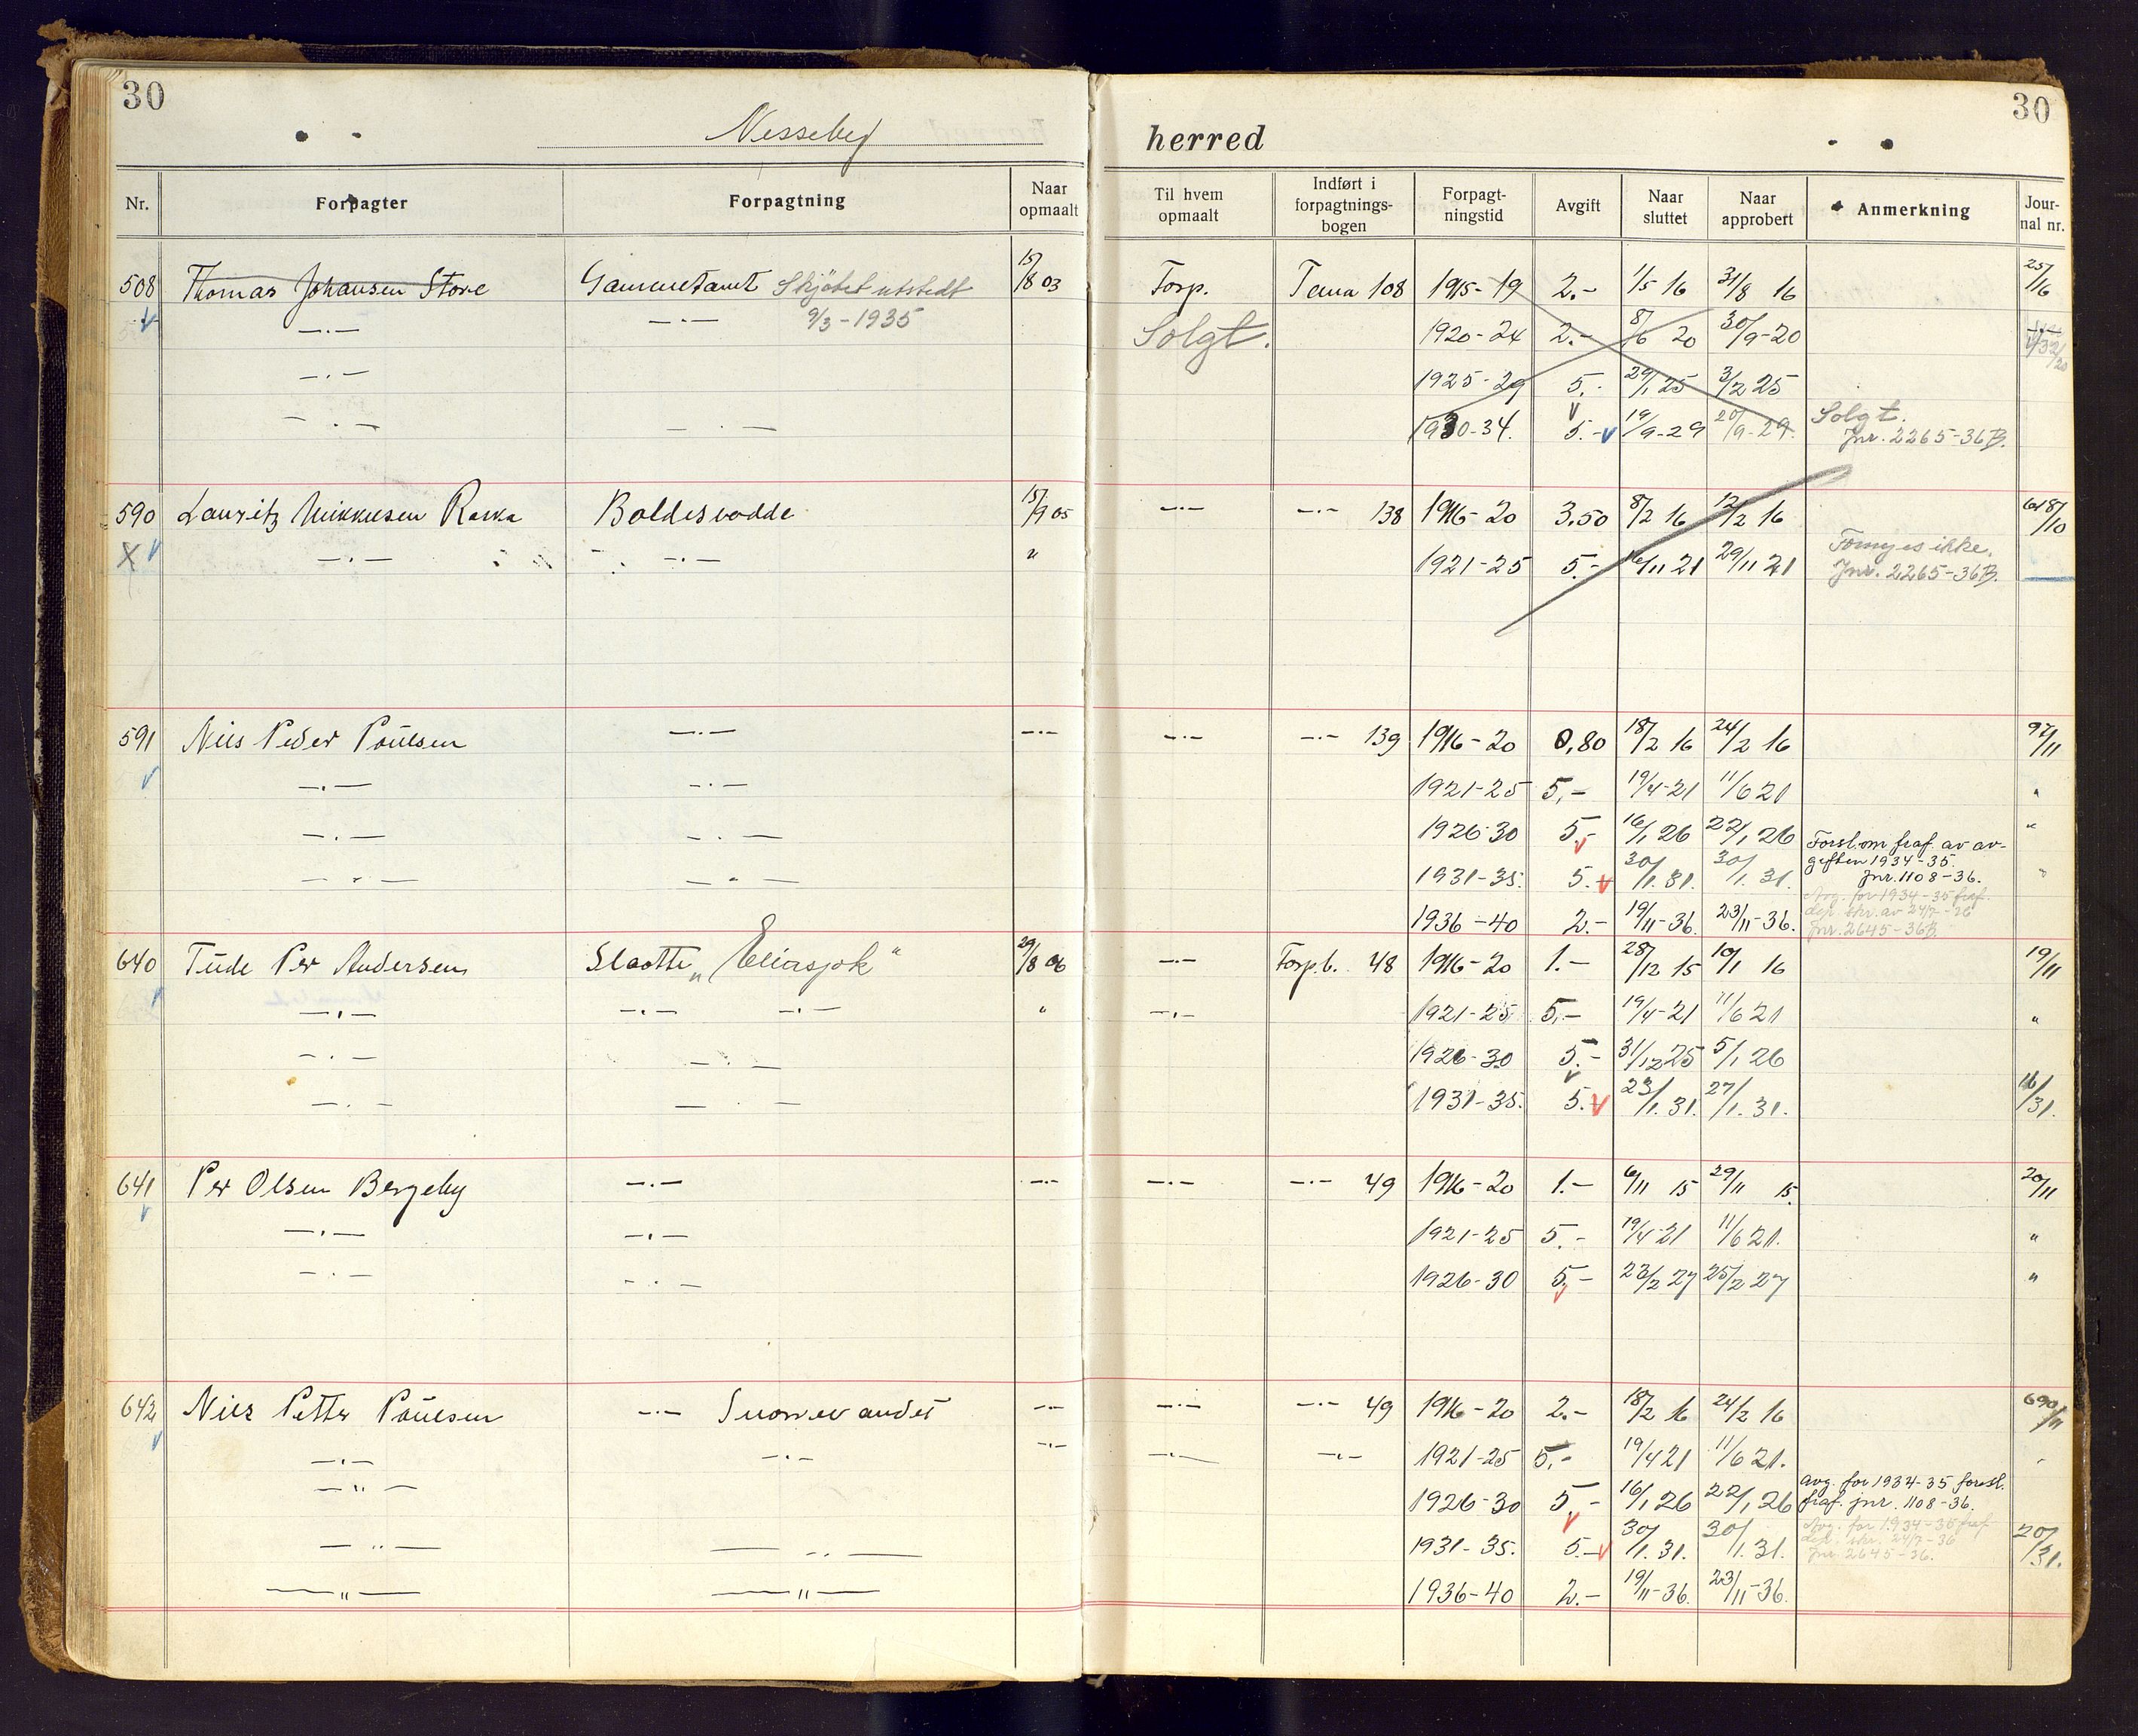 30
Nesseby herred
30
Nr. Forpagter Forpagtning Naar opmaalt Til hvem opmaalt Indført i forpagtnings-bogen Forpagt-ningstid Avgift Naar sluttet Naar approbert Anmerkning Jour-nal nr.
508 Thomas Johansen Store Gammetamt Skjøtet utstedt 15/8 03 Forp. Tana 108 1915-19 2.- 1/5 16 31/8 16 25/16
—·— —·— 9/3-1935 Solgt. 1920-24 2.- 8/6 20 30/9-20
—·— 1925-29 5.- 29/1 25 3/2 25
—·— —·— 1930-34. 5.- 19/9-29 20/9-29. Solgt.
Jnr. 2265-36B.
590 Lauritz Mikkelsen Raska Boldesvodde 15/9 05 —·— —·— 138 1916-20 3.50 8/2 16 12/2 16 618/10
X —·— —·— " 1921-25 5.- 16/11 21 29/11 21 Fornyes ikke.
Jnr. 2265-36B.
591 Nils Peder Poulsen —·— —·— —·— —·— 139 1916-20 0,80 18/2 16 24/2 16 97/11
—·— —·— 1921-25 5,- 19/4-21 11/6 21 "
—·— —·— 1926-30 5.- 16/1 26 22/1 26 Forsl. om fraf. av av- "
—·— —·— 1931-35. 5.- 30/1. 31. 30/1. 31. giften 1934-35. "
Jnr. 1108-36.
1936-40 2.- 19/11-36. 23/11-36. Avg. for 1934-35 fraf.
dep. skr. av 24/7-36
Jnr. 2645-36B.
640 Tude Per Andersen Slaatte "Eliasjok" 29/8 06 —·— Forp.b. 48 1916-20 1.- 28/12 15 10/1 16 19/11
—·— —·— —·— " —·— 1921-25 5,- 19/4-21 11/6 21 "
—·— —·— 1926-30 5.- 31/12 25 5/1 26
—·— —·— 1931-35. 5.- 23/1. 31. 27/1. 31. 16/31.
641 Per Olsen Bergeby —·— —·— —·— —·— 49 1916-20 1.- 6/11 15 29/11 15. 20/11
—·— —·— 1921-25 5.- 19/4 21 11/6 21. "
—·— —·— 1926-30 5,- 23/2 27 25/2 27 "
642 Nils Petter Poulsen —·— Suovvevandet —·— —·— —·— 49 1916-20 2.- 18/2 16 24/2 16 690/11
—·— —·— —·— —·— —·— 1921-25 5.- 19/4 21 11/6 21.
—"— 1926-30 5,- 16/1 26 22/1 26 Avg. for 1934-35 foresl.
fraf. jnr. 1108-36.
—"— —"— 1931-35. 5.- 30/1. 31. 30/1. 31. Avg. for 1934-35 fraf. 20/31.
dep. skr. 24/7-36
Jnr. 2645-36.
—"— —"— 1936-40 2.- 19/11-36. 23/11-36.